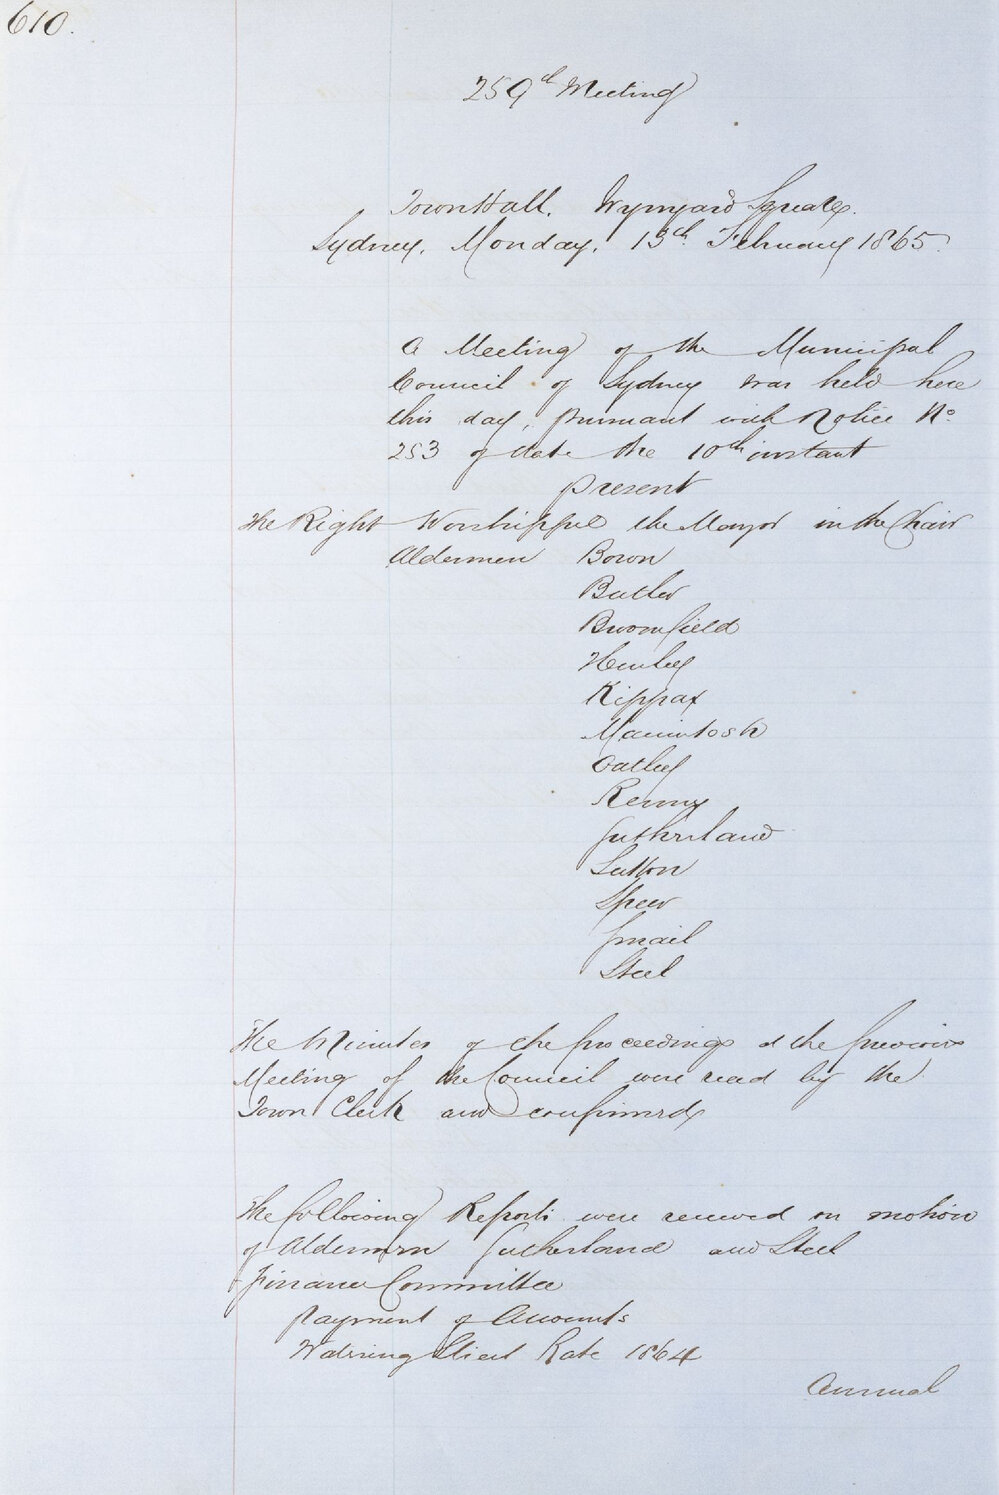 610.
259th Meeting
Town Hall. Wynyard Square.
Sydney. Monday. 13th February 1865.
A Meeting of the Municipal
Council of Sydney was held here
this day, pursuant with Notice No
253 of date the 10th instant
present
The Right Worshipful the Mayor in the Chair
Aldermen Bown
Butler
Broomfield
Henley
Kippax
Macintosh
Oatley
Renny
Sutherland
Sutton
Speer
Smail
Steel
The Minutes of the proceedings at the previous
Meeting of the Council were read by the
Town Clerk and confirmed
The following Reports were received on motion
of Aldermen Sutherland and Steel
Finance Committee
Payment of Accounts
Watering Street Rate 1864
Annual